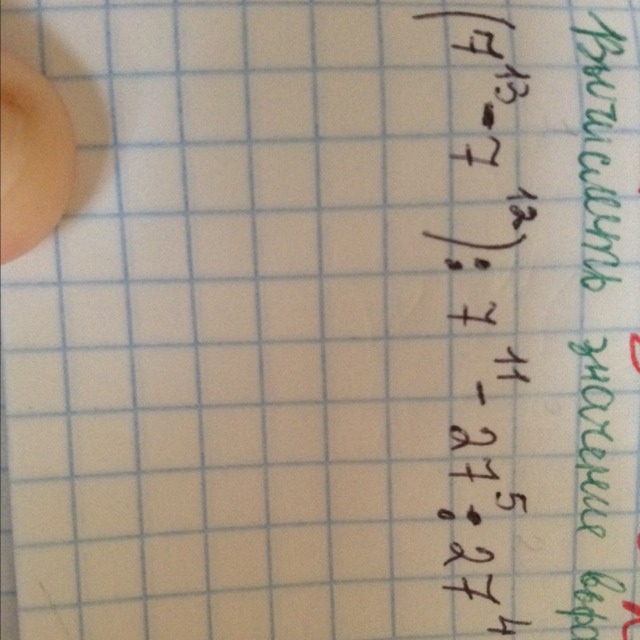 Вычислить значение выра
(7¹³ - 7¹²) : 7¹¹ - 27⁵ : 27⁴